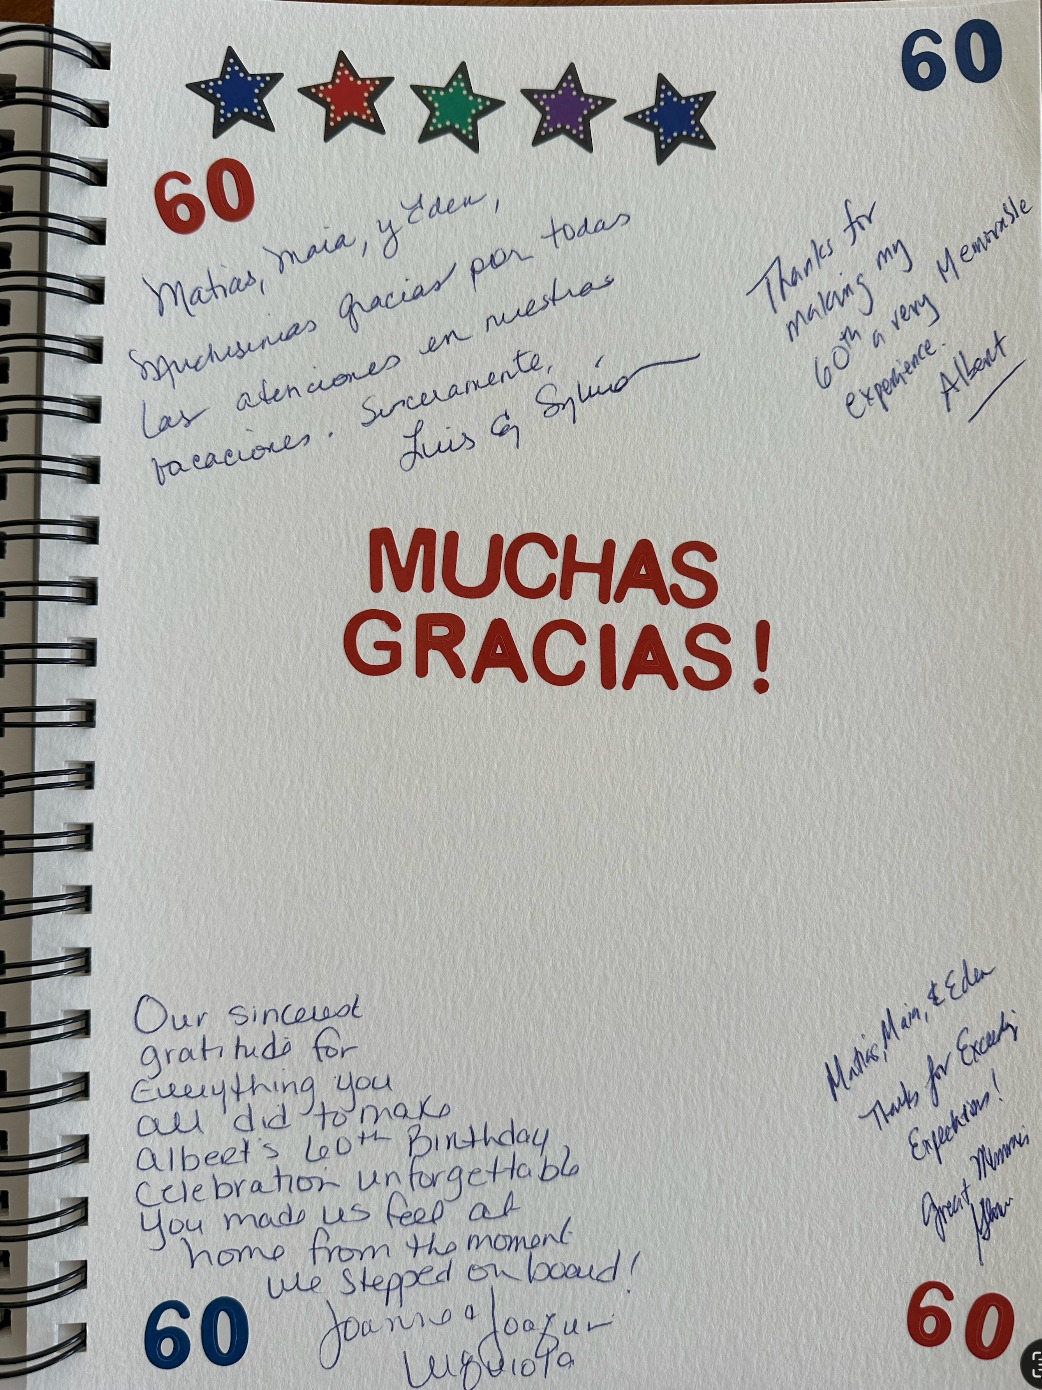 60
60
Matias, Maia, y Eden,
Muchisimas gracias por todas
las atenciones en nuestras
vacaciones. Sinceramente,
Luis & Sylvia
Thanks for
making my
60th a very Memorable
experience.
Albert
MUCHAS
GRACIAS!
Our sincerest
gratitude for
Everything you
all did to make
Albert's 60th Birthday
Celebration unforgettable
You made us feel at
home from the moment
we stepped on board!
Joanne & Joaquin
60
Matias, Maia, & Eden
Thanks for Exceeding
Expectations!
Great Memories
60